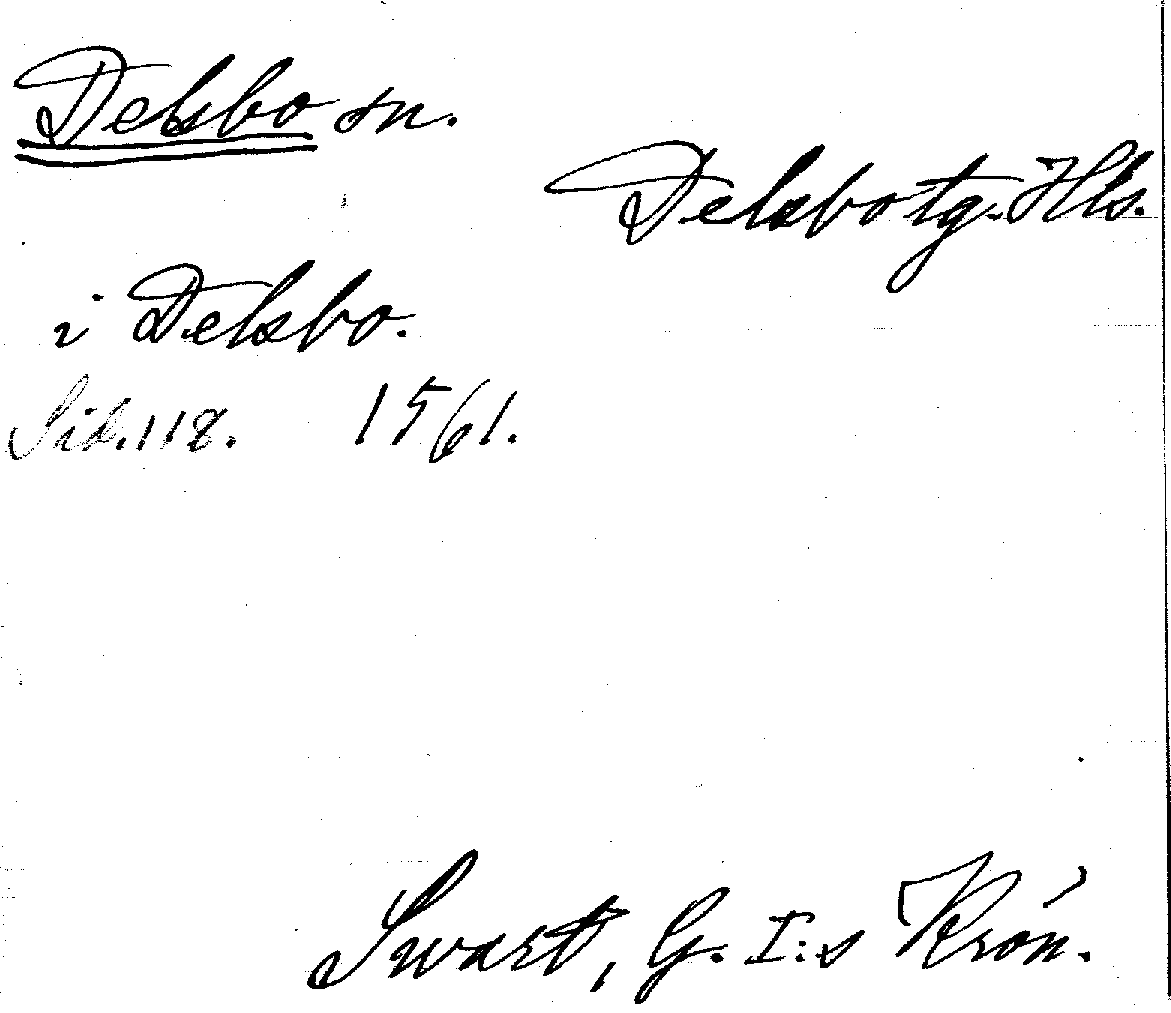 Delsbo sn.
Delsbo tg. Hls.
i Delsbo.
Sid. 118. 1561.
Swart, G. I:s Krön.